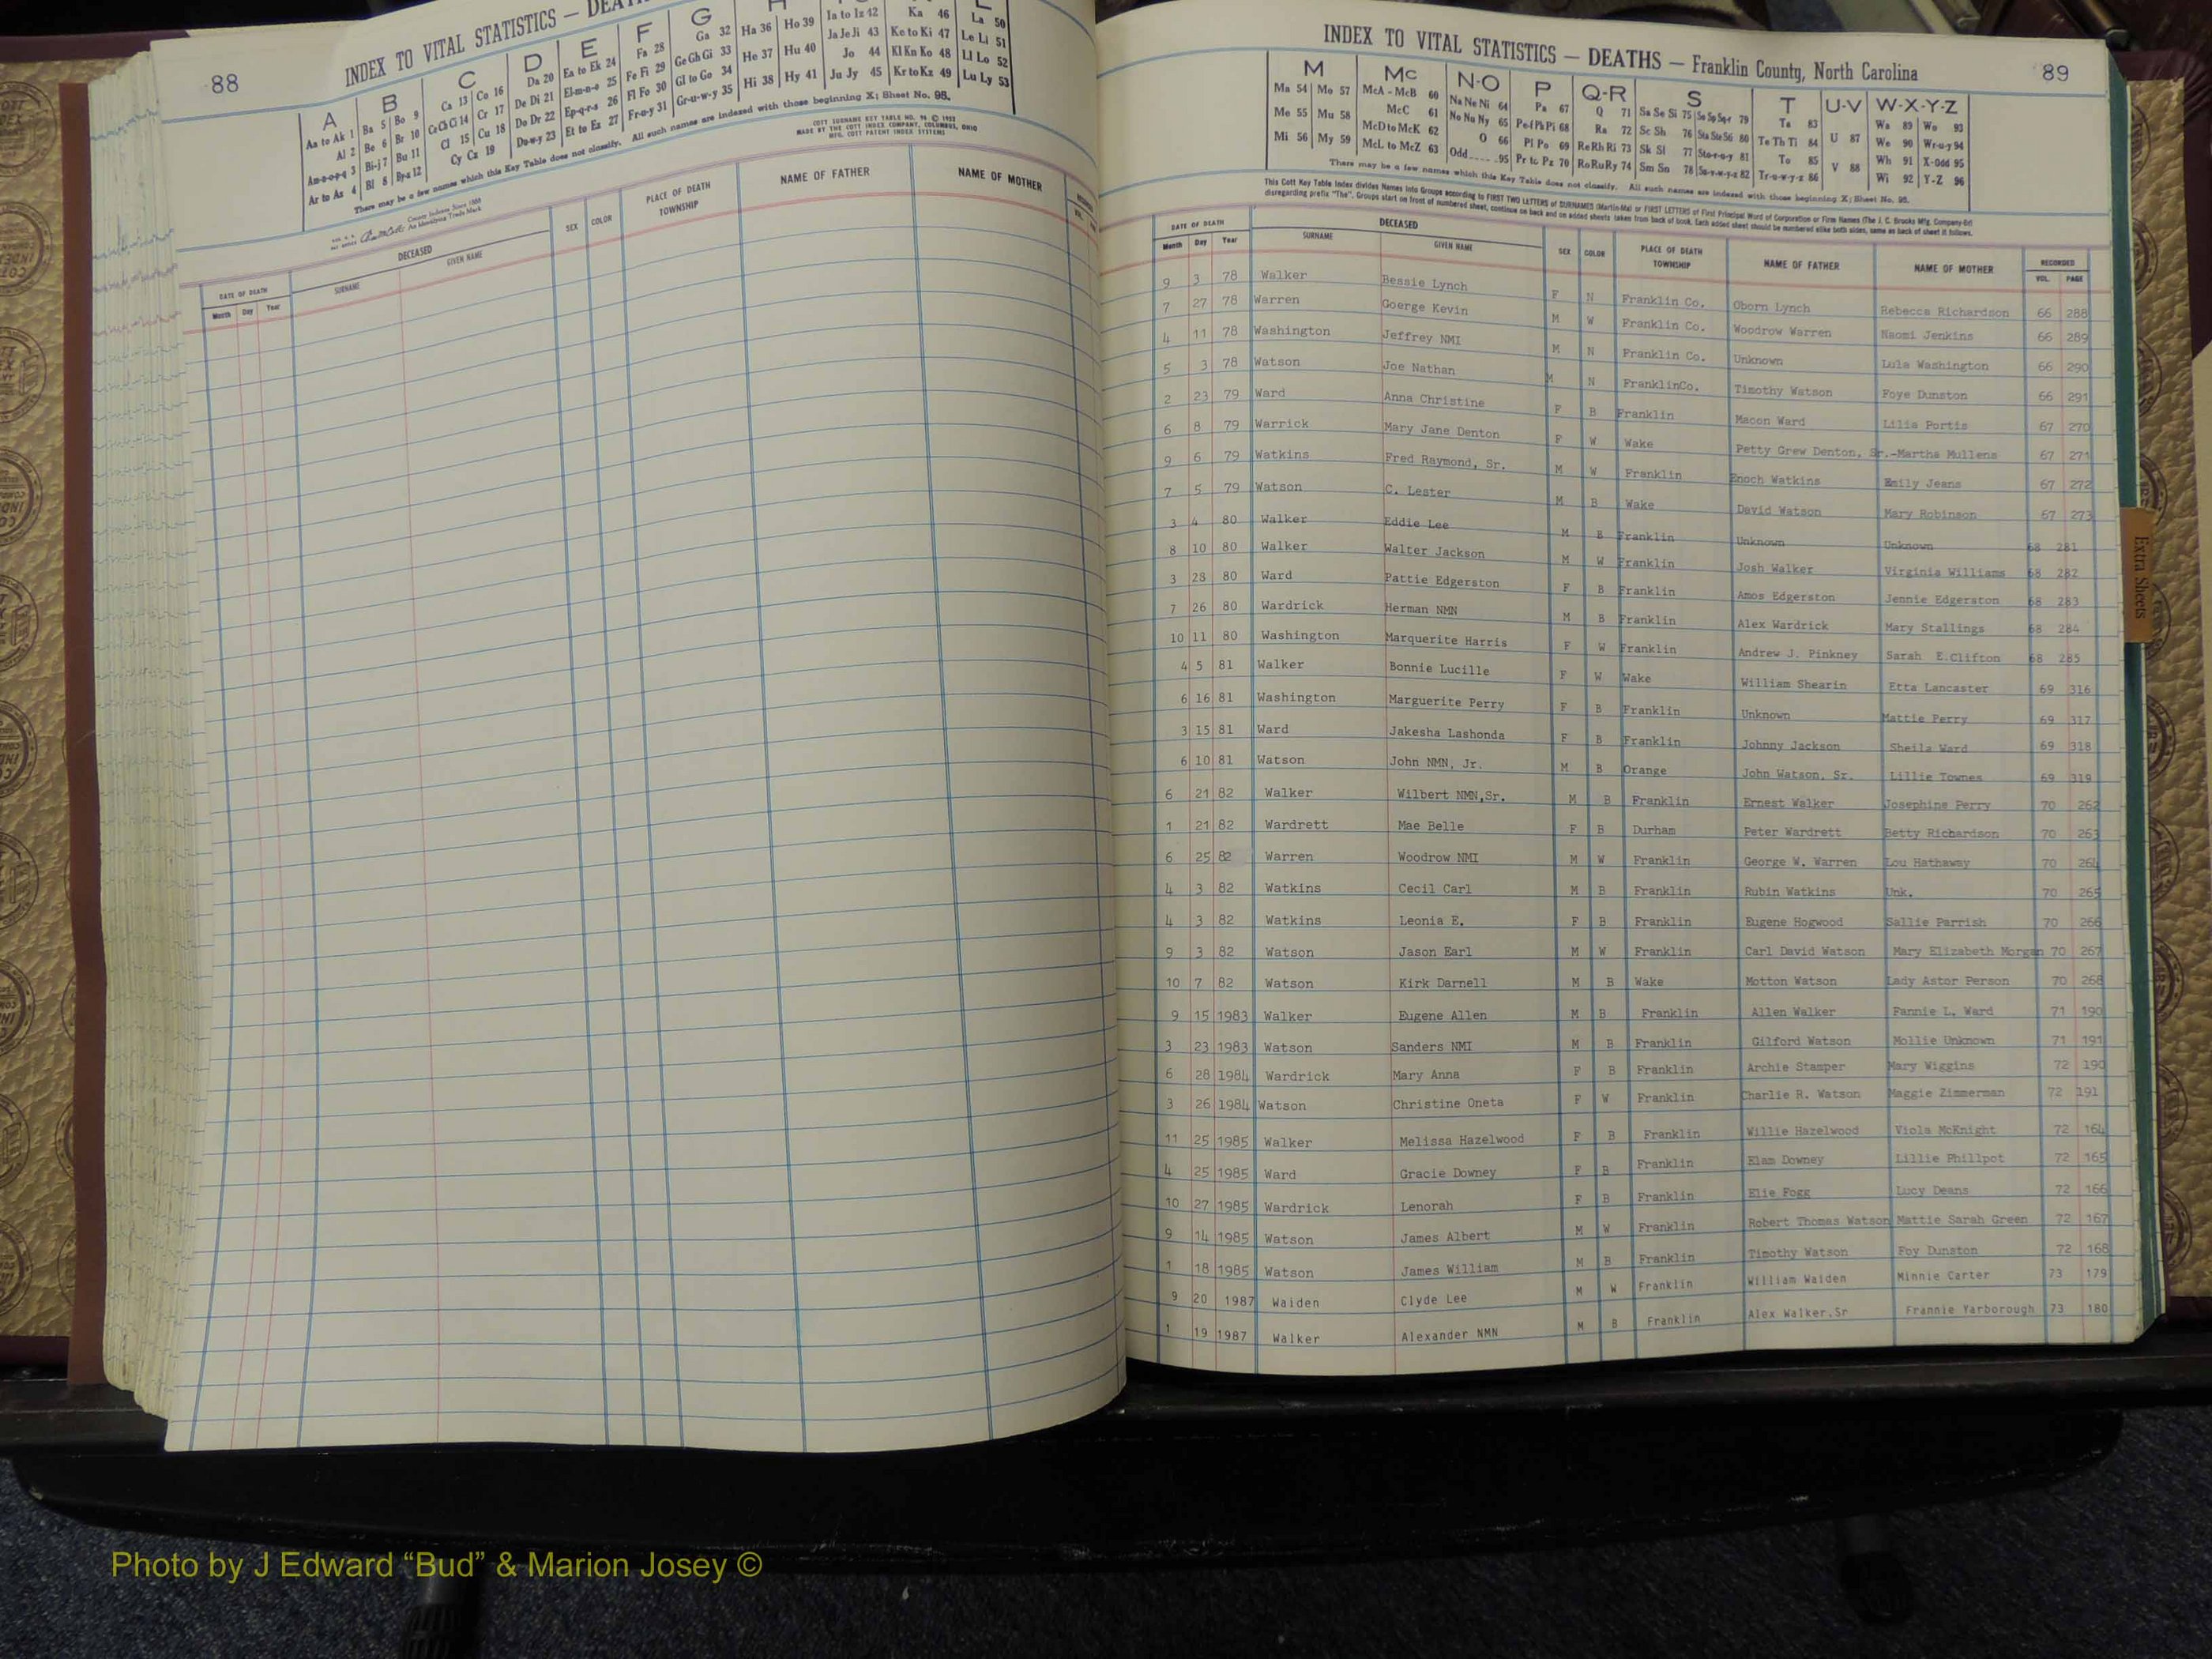 88
INDEX TO VITAL STATISTICS — DEA
A B C D E F G
Aa to Ak 1 Ba 5 Bo 9 Ca 13 Co 16 Da 20 Ea to Ek 24 Fa 28 Ga 32 Ha 36 Ho 39 Ia to Iz 42 Ka 46 La 50
Al 2 Be 6 Br 10 Ce Ch Ci 14 Cr 17 De Di 21 El-m-n-o 25 Fe Fi 29 Ge Gh Gi 33 He 37 Hu 40 Ja Je Ji 43 Ke to Ki 47 Le Li 51
Am-n-o-p-q 3 Bi-j 7 Bu 11 Cl 15 Cu 18 Do Dr 22 Ep-q-r-s 26 Fl Fo 30 Gl to Go 34 Hi 38 Hy 41 Jo 44 Kl Kn Ko 48 Ll Lo 52
Ar to Az 4 Bl 8 By-z 12 Cy Cz 19 Du-w-y 23 Et to Ez 27 Fr-u-y 31 Gr-u-w-y 35 Ju Jy 45 Kr to Kz 49 Lu Ly 53
There may be a few names which this Key Table does not classify. All such names are indexed with those beginning X; Sheet No. 95.
COTT SURNAME KEY TABLE NO. 96 © 1952
MADE BY THE COTT INDEX COMPANY, COLUMBUS, OHIO
MFG. COTT PATENT INDEX SYSTEMS
County Indexes Since 1888
An Identifying Trade Mark
DATE OF DEATH DECEASED SEX COLOR PLACE OF DEATH TOWNSHIP NAME OF FATHER NAME OF MOTHER
Month Day Year SURNAME GIVEN NAME
INDEX TO VITAL STATISTICS — DEATHS — Franklin County, North Carolina
89
M Mc N-O P Q-R S T U-V W-X-Y-Z
Ma 54 Mo 57 McA - McB 60 Na Ne Ni 64 Pa 67 Q 71 Sa Se Si 75 So Sp Sq-r 79 Ta 83 U 87 Wa 89 Wo 93
Me 55 Mu 58 McC 61 No Nu Ny 65 Pe-f Ph Pi 68 Ra 72 Sc Sh 76 Sta Ste Sti 80 Te Th Ti 84 V 88 We 90 Wr-u-y 94
Mi 56 My 59 McD to McK 62 O 66 Pl Po 69 Re Rh Ri 73 Sk Sl 77 Sto-r-u-y 81 To 85 Wh 91 X-Odd 95
McL to McZ 63 Odd 95 Pr to Pz 70 Ro Ru Ry 74 Sm Sn 78 Su-v-w-y-z 82 Tr-u-w-y-z 86 Wi 92 Y-Z 96
There may be a few names which this Key Table does not classify. All such names are indexed with those beginning X; Sheet No. 95.
This Cott Key Table Index divides Names into Groups according to FIRST TWO LETTERS of SURNAMES (Martin-Ma) or FIRST LETTERS of First Principal Word of Corporation or Firm Names (The J. C. Brooks Mfg. Company-Br)
disregarding prefix "The". Groups start on front of numbered sheet, continue on back and on added sheets taken from back of book. Each added sheet should be numbered alike both sides, same as back of sheet it follows.
DATE OF DEATH DECEASED SEX COLOR PLACE OF DEATH TOWNSHIP NAME OF FATHER NAME OF MOTHER RECORDED
Month Day Year SURNAME GIVEN NAME VOL. PAGE
9 3 78 Walker Bessie Lynch F N Franklin Co. Oborn Lynch Rebecca Richardson 66 288
7 27 78 Warren Goerge Kevin M W Franklin Co. Woodrow Warren Naomi Jenkins 66 289
4 11 78 Washington Jeffrey NMI M N Franklin Co. Unknown Lula Washington 66 290
5 3 78 Watson Joe Nathan M N FranklinCo. Timothy Watson Foye Dunston 66 291
2 23 79 Ward Anna Christine F B Franklin Macon Ward Lilia Portis 67 270
6 8 79 Warrick Mary Jane Denton F W Wake Petty Grew Denton, Sr.-Martha Mullens 67 271
9 6 79 Watkins Fred Raymond, Sr. M W Franklin Enoch Watkins Emily Jeans 67 272
7 5 79 Watson C. Lester M B Wake David Watson Mary Robinson 67 273
3 4 80 Walker Eddie Lee M B Franklin Unknown Unknown 68 281
8 10 80 Walker Walter Jackson M W Franklin Josh Walker Virginia Williams 68 282
3 28 80 Ward Pattie Edgerston F B Franklin Amos Edgerston Jennie Edgerston 68 283
7 26 80 Wardrick Herman NMN M B Franklin Alex Wardrick Mary Stallings 68 284
10 11 80 Washington Marquerite Harris F W Franklin Andrew J. Pinkney Sarah E.Clifton 68 285
4 5 81 Walker Bonnie Lucille F W Wake William Shearin Etta Lancaster 69 316
6 16 81 Washington Marguerite Perry F B Franklin Unknown Mattie Perry 69 317
3 15 81 Ward Jakesha Lashonda F B Franklin Johnny Jackson Sheila Ward 69 318
6 10 81 Watson John NMN, Jr. M B Orange John Watson, Sr. Lillie Townes 69 319
6 21 82 Walker Wilbert NMN,Sr. M B Franklin Ernest Walker Josephine Perry 70 262
1 21 82 Wardrett Mae Belle F B Durham Peter Wardrett Betty Richardson 70 263
6 25 82 Warren Woodrow NMI M W Franklin George W. Warren Lou Hathaway 70 264
4 3 82 Watkins Cecil Carl M B Franklin Rubin Watkins Unk. 70 265
4 3 82 Watkins Leonia E. F B Franklin Eugene Hogwood Sallie Parrish 70 266
9 3 82 Watson Jason Earl M W Franklin Carl David Watson Mary Elizabeth Morgan 70 267
10 7 82 Watson Kirk Darnell M B Wake Motton Watson Lady Astor Person 70 268
9 15 1983 Walker Eugene Allen M B Franklin Allen Walker Fannie L. Ward 71 190
3 23 1983 Watson Sanders NMI M B Franklin Gilford Watson Mollie Unknown 71 191
6 28 1984 Wardrick Mary Anna F B Franklin Archie Stamper Mary Wiggins 72 190
3 26 1984 Watson Christine Oneta F W Franklin Charlie R. Watson Maggie Zimmerman 72 191
11 25 1985 Walker Melissa Hazelwood F B Franklin Willie Hazelwood Viola McKnight 72 164
4 25 1985 Ward Gracie Downey F B Franklin Elam Downey Lillie Phillpot 72 165
10 27 1985 Wardrick Lenorah F B Franklin Elie Fogg Lucy Deans 72 166
9 14 1985 Watson James Albert M W Franklin Robert Thomas Watson Mattie Sarah Green 72 167
1 18 1985 Watson James William M B Franklin Timothy Watson Foy Dunston 72 168
9 20 1987 Waiden Clyde Lee M W Franklin William Waiden Minnie Carter 73 179
1 19 1987 Walker Alexander NMN M B Franklin Alex Walker,Sr Frannie Yarborough 73 180
Extra Sheets
Photo by J Edward “Bud” & Marion Josey ©